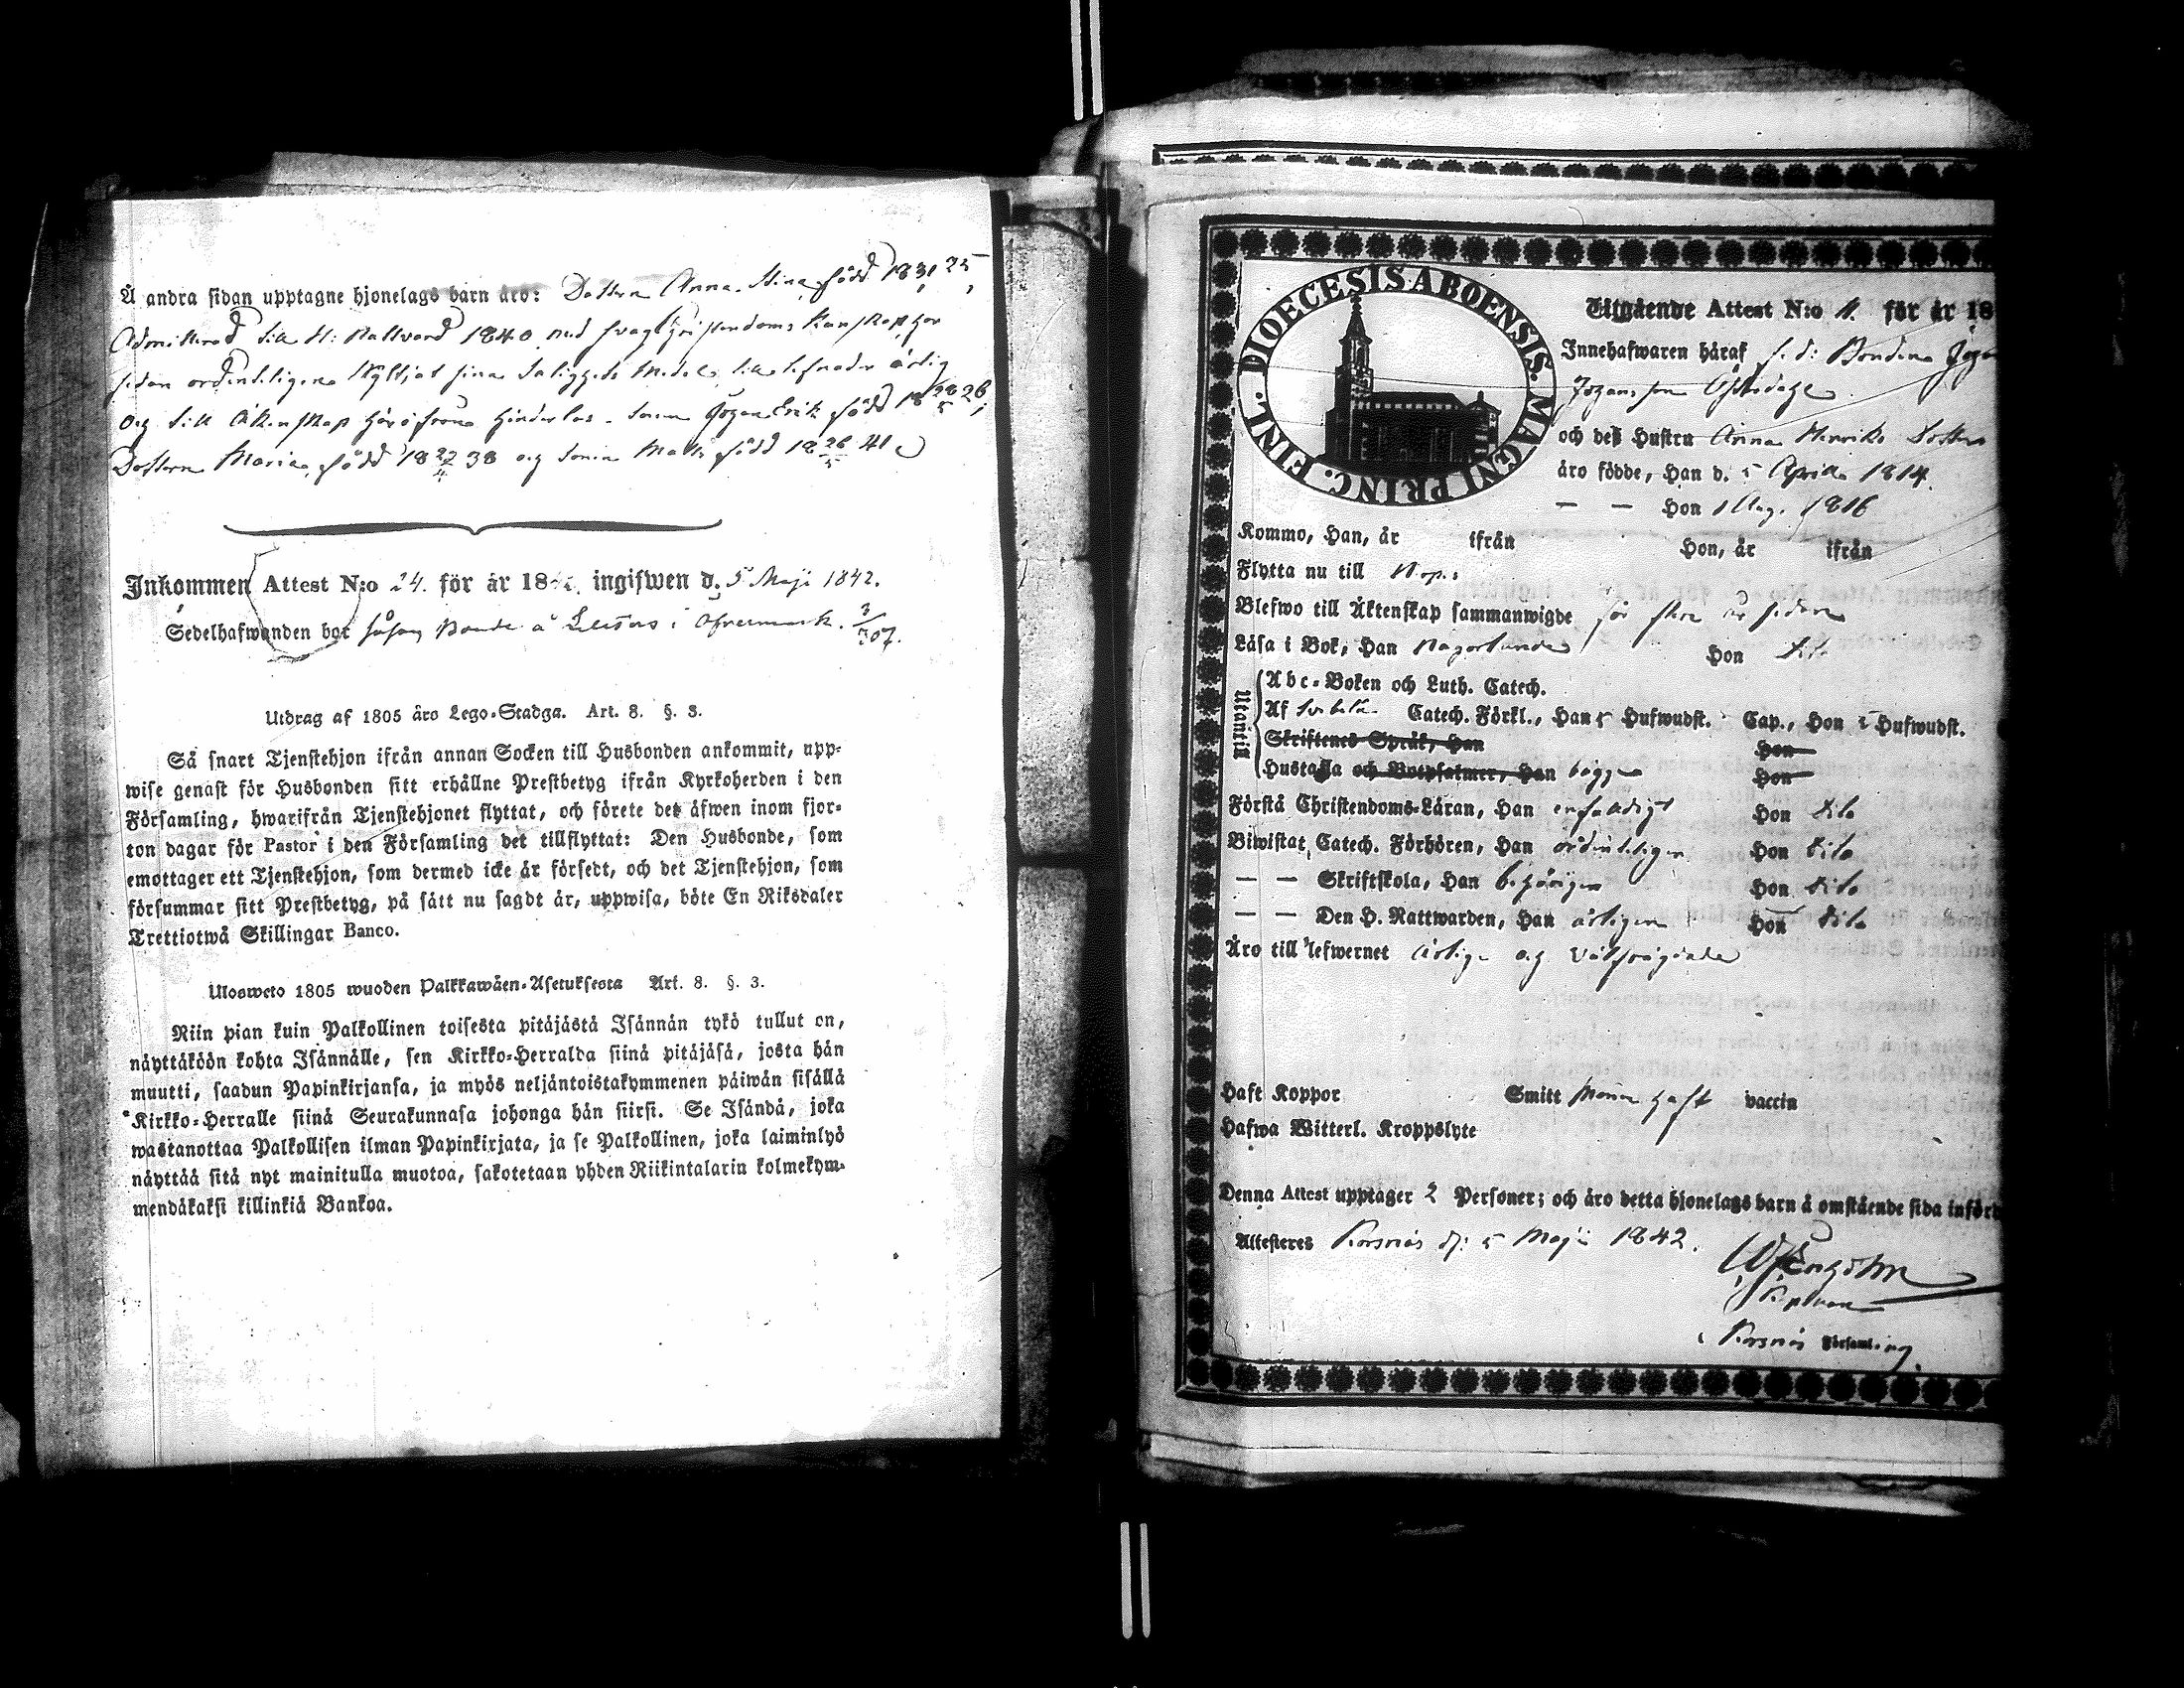 Å andra sidan upptagne hjonelags barn äro: Dottern Anna Stina född 18 31/5 25,
Admitterad till H: Nattvard 1840 med svag Christendoms kunskap, har
sedan ordenteligen skylljat sina Saliggets medel, till lefnaden ärlig
och till Äktenskap härifrån hinderlös. Sonen Johan Erik född 18 28/5 26,
Dottern Maria, född 18 22/4 38 och Sonen Matts född 18 26/5 41
Inkommen Attest N:o 24. för år 184 ingifwen d. 5 Maji 1842.
Sedelhafwanden bor såsom Bonde å i Öfvermark. 3/307.
Utdrag af 1805 åro Lego-Stadga. Art. 8. §. 3.
Så snart Tjenstehjon ifrån annan Socken till Husbonden ankommit, upp-
wise genast för Husbonden sitt erhållne Prestbetyg ifrån Kyrkoherden i den
Församling, hwarifrån Tjenstehjonet flyttat, och förete det äfwen inom fjor-
ton dagar för Pastor i den Församling det tillflyttat: Den Husbonde, som
emottager ett Tjenstehjon, som dermed icke är försedt, och det Tjenstehjon, som
försummar sitt Prestbetyg, på sätt nu sagdt är, uppwisa, böte En Riksdaler
Trettiotwå Skillingar Banco.
Ulosweto 1805 wuoden Palkkawäen-Asetuksesta Art. 8. §. 3.
Niin pian kuin Palkollinen toisesta pitäjästä Isännän tykö tullut on,
näyttäköön kohta Isännälle, sen Kirkko-Herralda siinä pitäjäsä, josta hän
muutti, saadun Papinkirjansa, ja myös neljäntoistakymmenen päiwän sisällä
Kirkko-Herralle siinä Seurakunnasa johonga hän siirsi. Se Isändä, joka
wastanottaa Palkollisen ilman Papinkirjata, ja se Palkollinen, joka laiminlyö
näyttää sitä nyt mainitulla muotoa, sakotetaan yhden Riikintalarin kolmekym-
mendäkaksi killinkiä Bankoa.
DIOECESIS ABOENSIS. MAGNI PRINC. FINL.
Utgående Attest N:o 11. för år 18
Innehafwaren häraf f. d: Bonden
Johansson
och deß Hustru Anna Henriks Dotter
äro födde, Han d. 5 April 1814.
— — Hon 1 Aug. 1816
Kommo, Han, år ifrån Hon, år ifrån
Flytta nu till
Blefwo till Äktenskap sammanwigde för flere år sedan
Läsa i Bok, Han någorlunda Hon dito
Utantill
Abc-Boken och Luth. Catech.
Af Svebelii Catech. Förkl., Han 5 Hufwudst. Cap., Hon 5 Hufwudst.
Skriftenes Språk, Han Hon
Hustafla och Botpsalmer, Han begge Hon
Förstå Christendoms-Läran, Han enfaldigt Hon dito
Biwistat Catech. Förhören, Han ordenteligen Hon dito
— — Skriftskola, Han behörigen Hon dito
— — Den H. Nattwarden, Han årligen Hon dito
Äro till lefwernet ärlige och välfrägdade
Haft Koppor Smitt Menar haft vaccin
Hafwa Witterl. Kroppslyte
Denna Attest upptager 2 Personer; och äro detta hjonelags barn å omstående sida införd
Attesteres Korsnäs d: 5 Maji 1842.
Kaplan
i Korsnäs Församling.